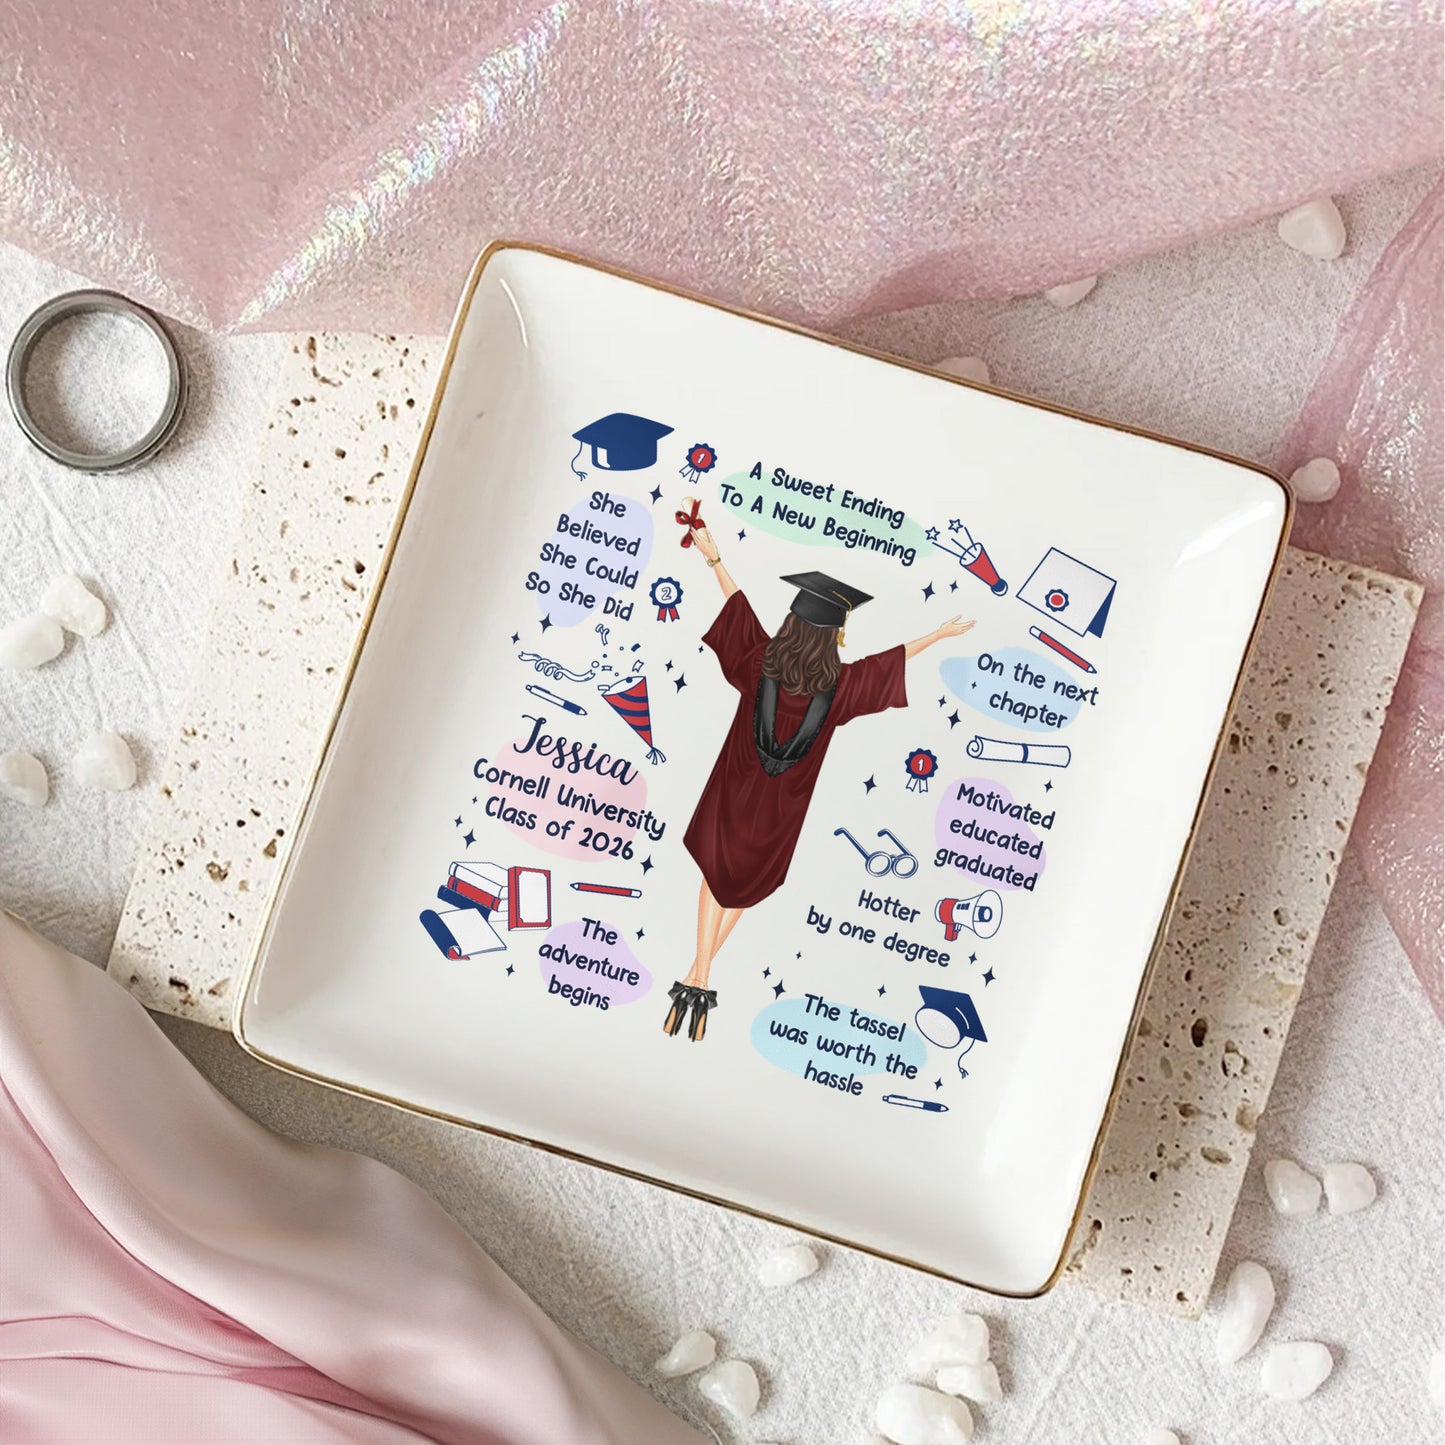 A Sweet Ending
To A New Beginning
1
She
Believed
She Could
So She Did
2
On the next
chapter
Jessica
Cornell University
Class of 2026
1
Motivated
educated
graduated
Hotter
by one degree
The
adventure
begins
The tassel
was worth the
hassle